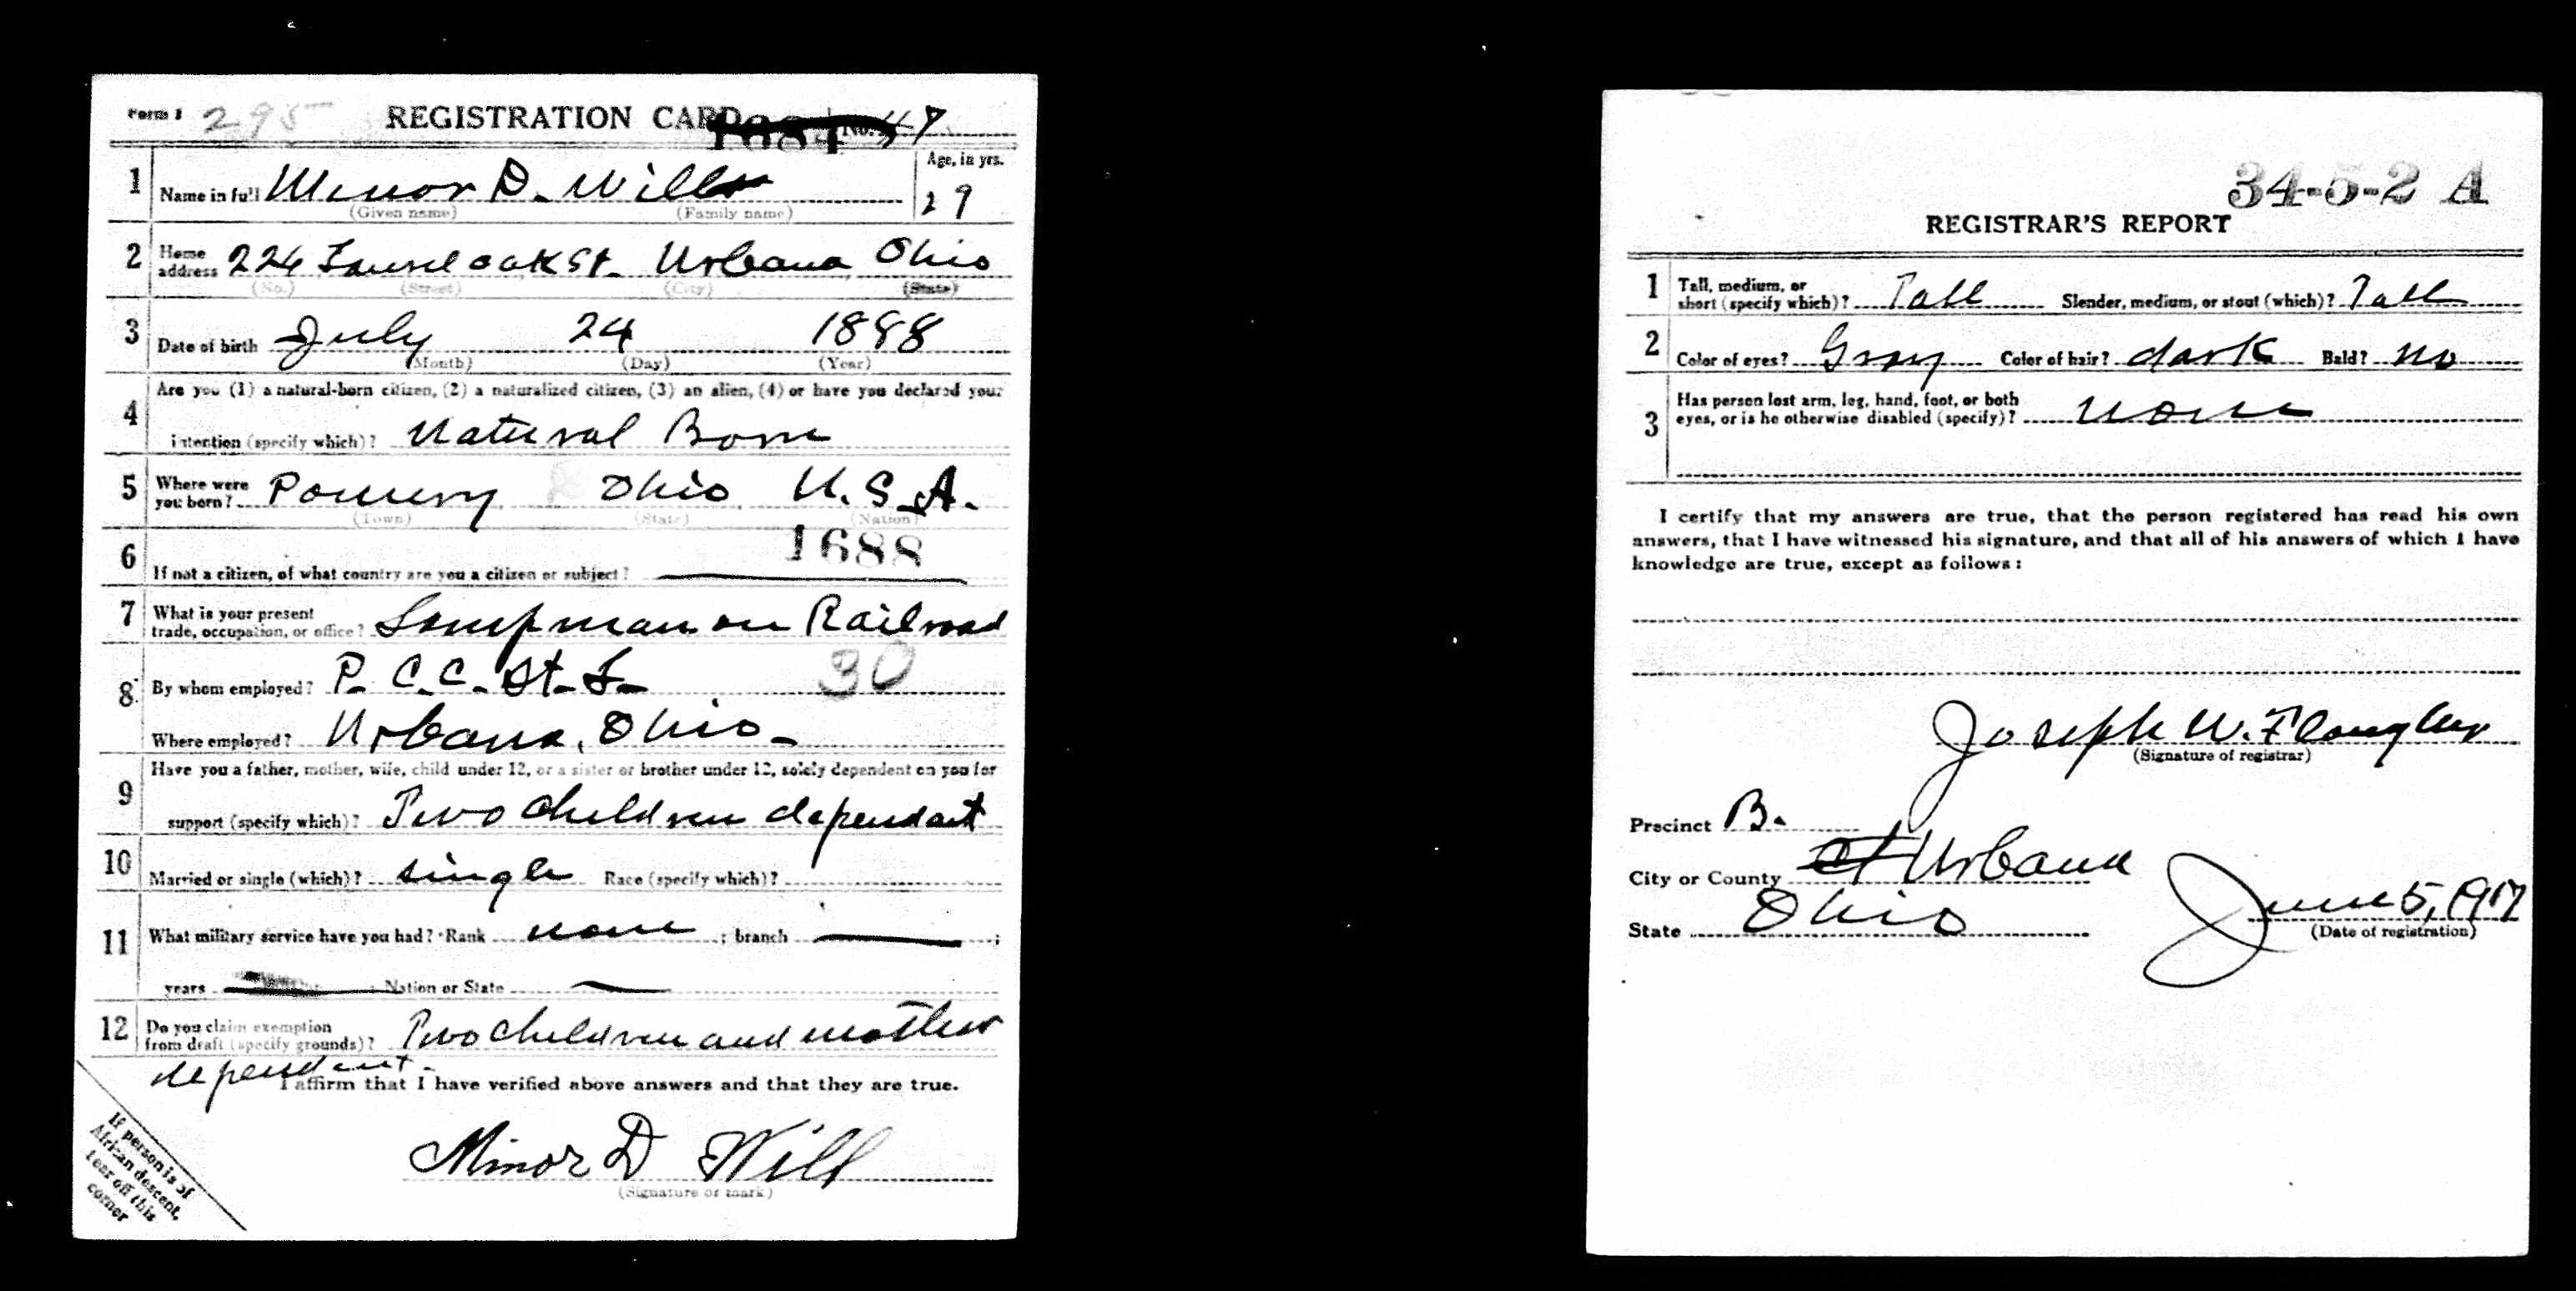 Form 1 295 REGISTRATION CARD No. 47
1 Name in full Minor D. Will Age, in yrs.
(Given name) (Family name) 29
2 Home address 224 Laurel oak St. Urbana Ohio
(No.) (Street) (City) (State)
3 Date of birth July 24 1888
(Month) (Day) (Year)
4 Are you (1) a natural-born citizen, (2) a naturalized citizen, (3) an alien, (4) or have you declared your
intention (specify which)? Natural Born
5 Where were you born? Pomeroy Ohio U.S.A.
(Town) (State) (Nation)
1688
6 If not a citizen, of what country are you a citizen or subject?
7 What is your present
trade, occupation, or office? Lampman on Railroad
8 By whom employed? P. C. C. St. L 30
Where employed? Urbana, Ohio
9 Have you a father, mother, wife, child under 12, or a sister or brother under 12, solely dependent on you for
support (specify which)? Two children dependant
10 Married or single (which)? single Race (specify which)?
11 What military service have you had? Rank none ; branch ;
years ; Nation or State
12 Do you claim exemption
from draft (specify grounds)? Two children and mother
dependent.
I affirm that I have verified above answers and that they are true.
Minor D Will
(Signature or mark)
If person is of
African descent,
tear off this
corner
34-5-2 A
REGISTRAR'S REPORT
1 Tall, medium, or
short (specify which)? Tall Slender, medium, or stout (which)? Tall
2 Color of eyes? Gray Color of hair? dark Bald? no
3 Has person lost arm, leg, hand, foot, or both
eyes, or is he otherwise disabled (specify)? none
I certify that my answers are true, that the person registered has read his own
answers, that I have witnessed his signature, and that all of his answers of which I have
knowledge are true, except as follows:
Joseph W.
(Signature of registrar)
Precinct B.
City or County Urbana
State Ohio June 5, 1917
(Date of registration)